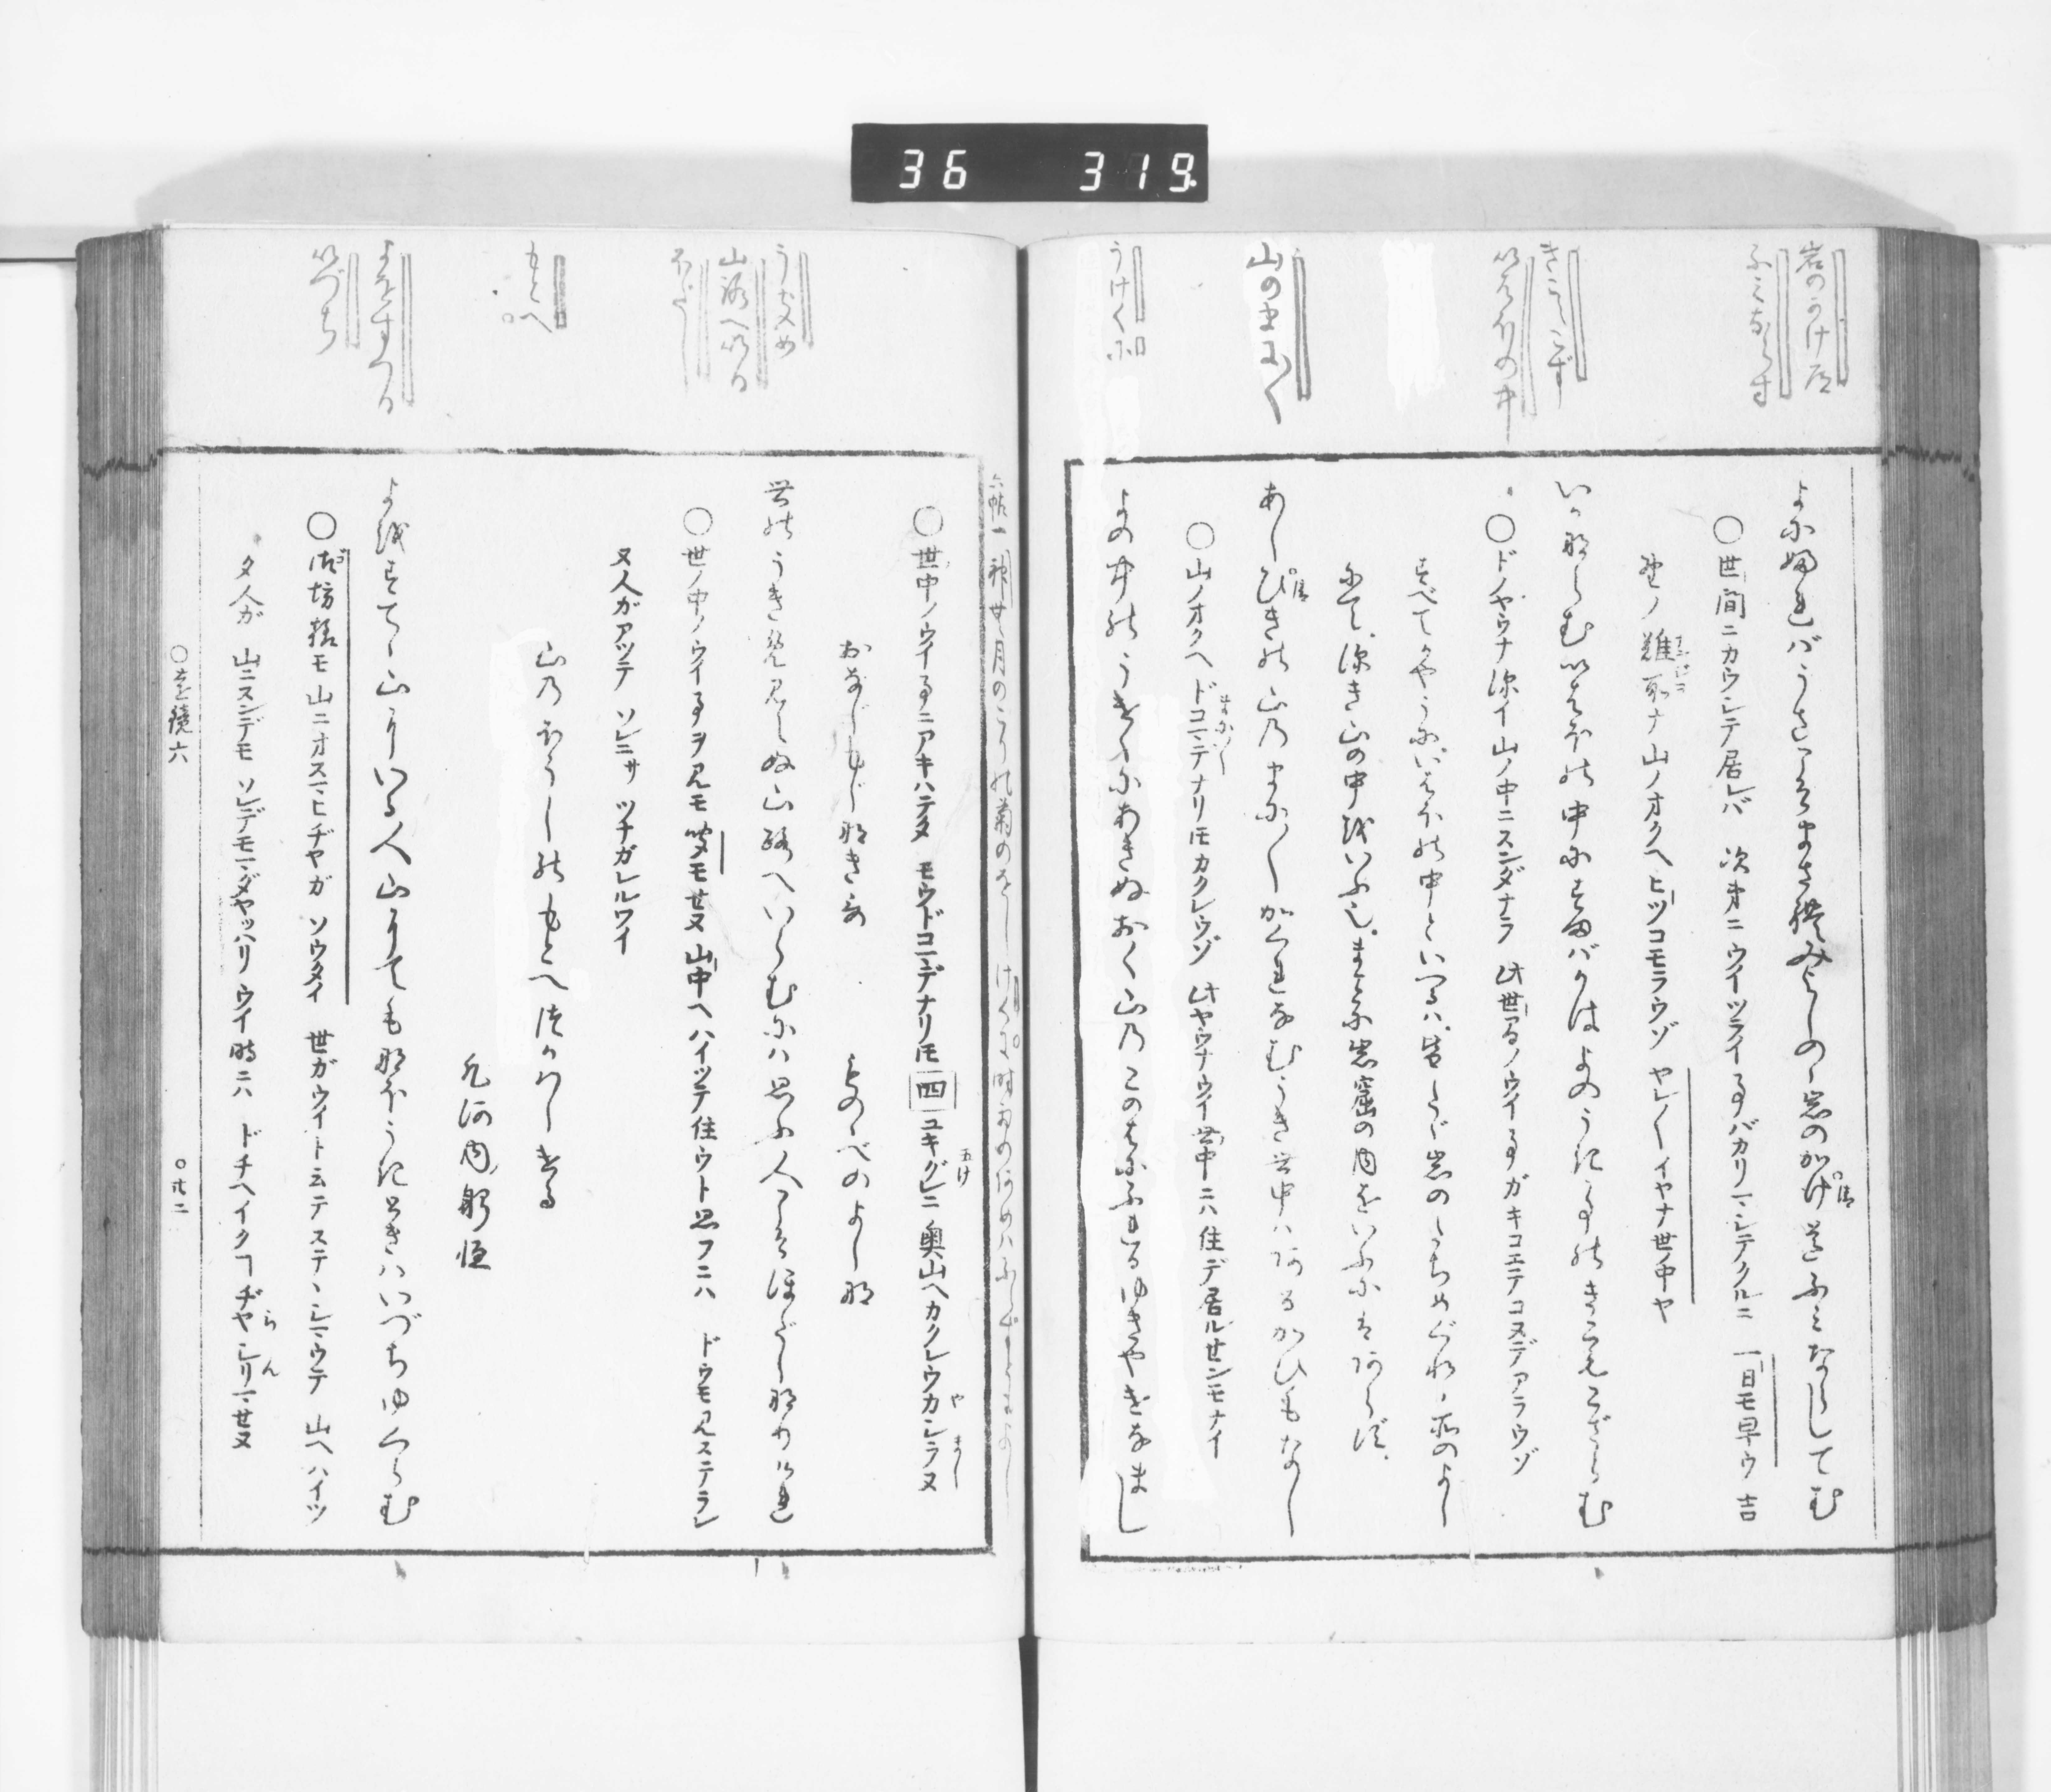 36 319
岩のかけ道
ふみならす
きこえこず
いはほの中
山のまに〱
うけくに
よにふればうさこそまされみよしのゝ岩のかけ道ふみならしてむ
○世間ニカウシテ居レバ 次第ニウイツライ事バカリマシテクルニ 一日モ早ウ 吉
野ノ難所ナ山ノオクヘヒツコモラウゾ ヤレ〱イヤナ世中ヤ
いかならむいはほの中にすまばかはよのうき事のきこえこざらむ
○ドノヤウナ深イ山ノ中ニスンダナラ 此世ノウイ事ガキコエテコヌデアラウゾ
すべてかやうに、いはほの中といへるは、皆たゞ岩のたちめぐれる所のよし
にて、深き山の中をいふ也、まことに岩窟の内をいふにはあらず、
あしびきの山のまに〱かくれなむうき世中はあるかひもなし
○山ノオクヘ ドコマデナリトモカクレウゾ 此ヤウナウイ世中ニハ 住デ居ルセンモナイ
よの中のうけくにあきぬおく山のこのはにふれるゆきやけなまし
○世中ノウイ事ニアキハテタ モウドコマデナリトモ 四 ユキグレニ奥山ヘカクレウカシラヌ
おなじもじなきうた
ものゝべのよしな
うきめ
山路へいる
ほだし
世のうきめ見えぬ山路へいらむにはおもふ人こそほだしなりけれ
○世ノ中ノウイ事ヲ見モ聞モセヌ山中ヘハイツテ住ウト思フニハ ドウモ見ステラレ
ヌ人ガアツテ ソレニサ ツナガレルワイ
もとへ
山のほうしのもとへつかはしける
凡河内躬恒
よをすつる
いづち
よをすてゝ山にいる人山にても猶うき時はいづちゆくらむ
○御坊様モ山ニオスマヒヂヤガ ソウタイ 世ガウイト云テステヽシマウテ 山ヘハイツ
タ人ガ 山ニスンデモ ソレデモマダヤツハリウイ時ニハ ドチヘイクコトヂヤシリマセヌ
○遠鏡六
○廿二